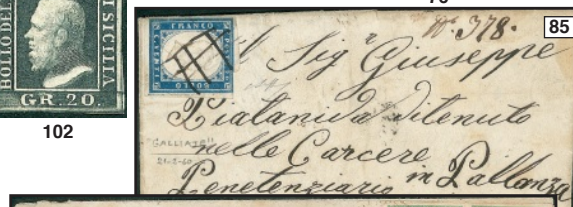 BOLLO DEL
I SICILIA
GR. 20.
102
85
FRANCO
N.º 378.
Il Sig.r Giuseppe
Piatanida ditenuto
nelle Carcere
Penetenziario in Pallanza
"GALLIATE"